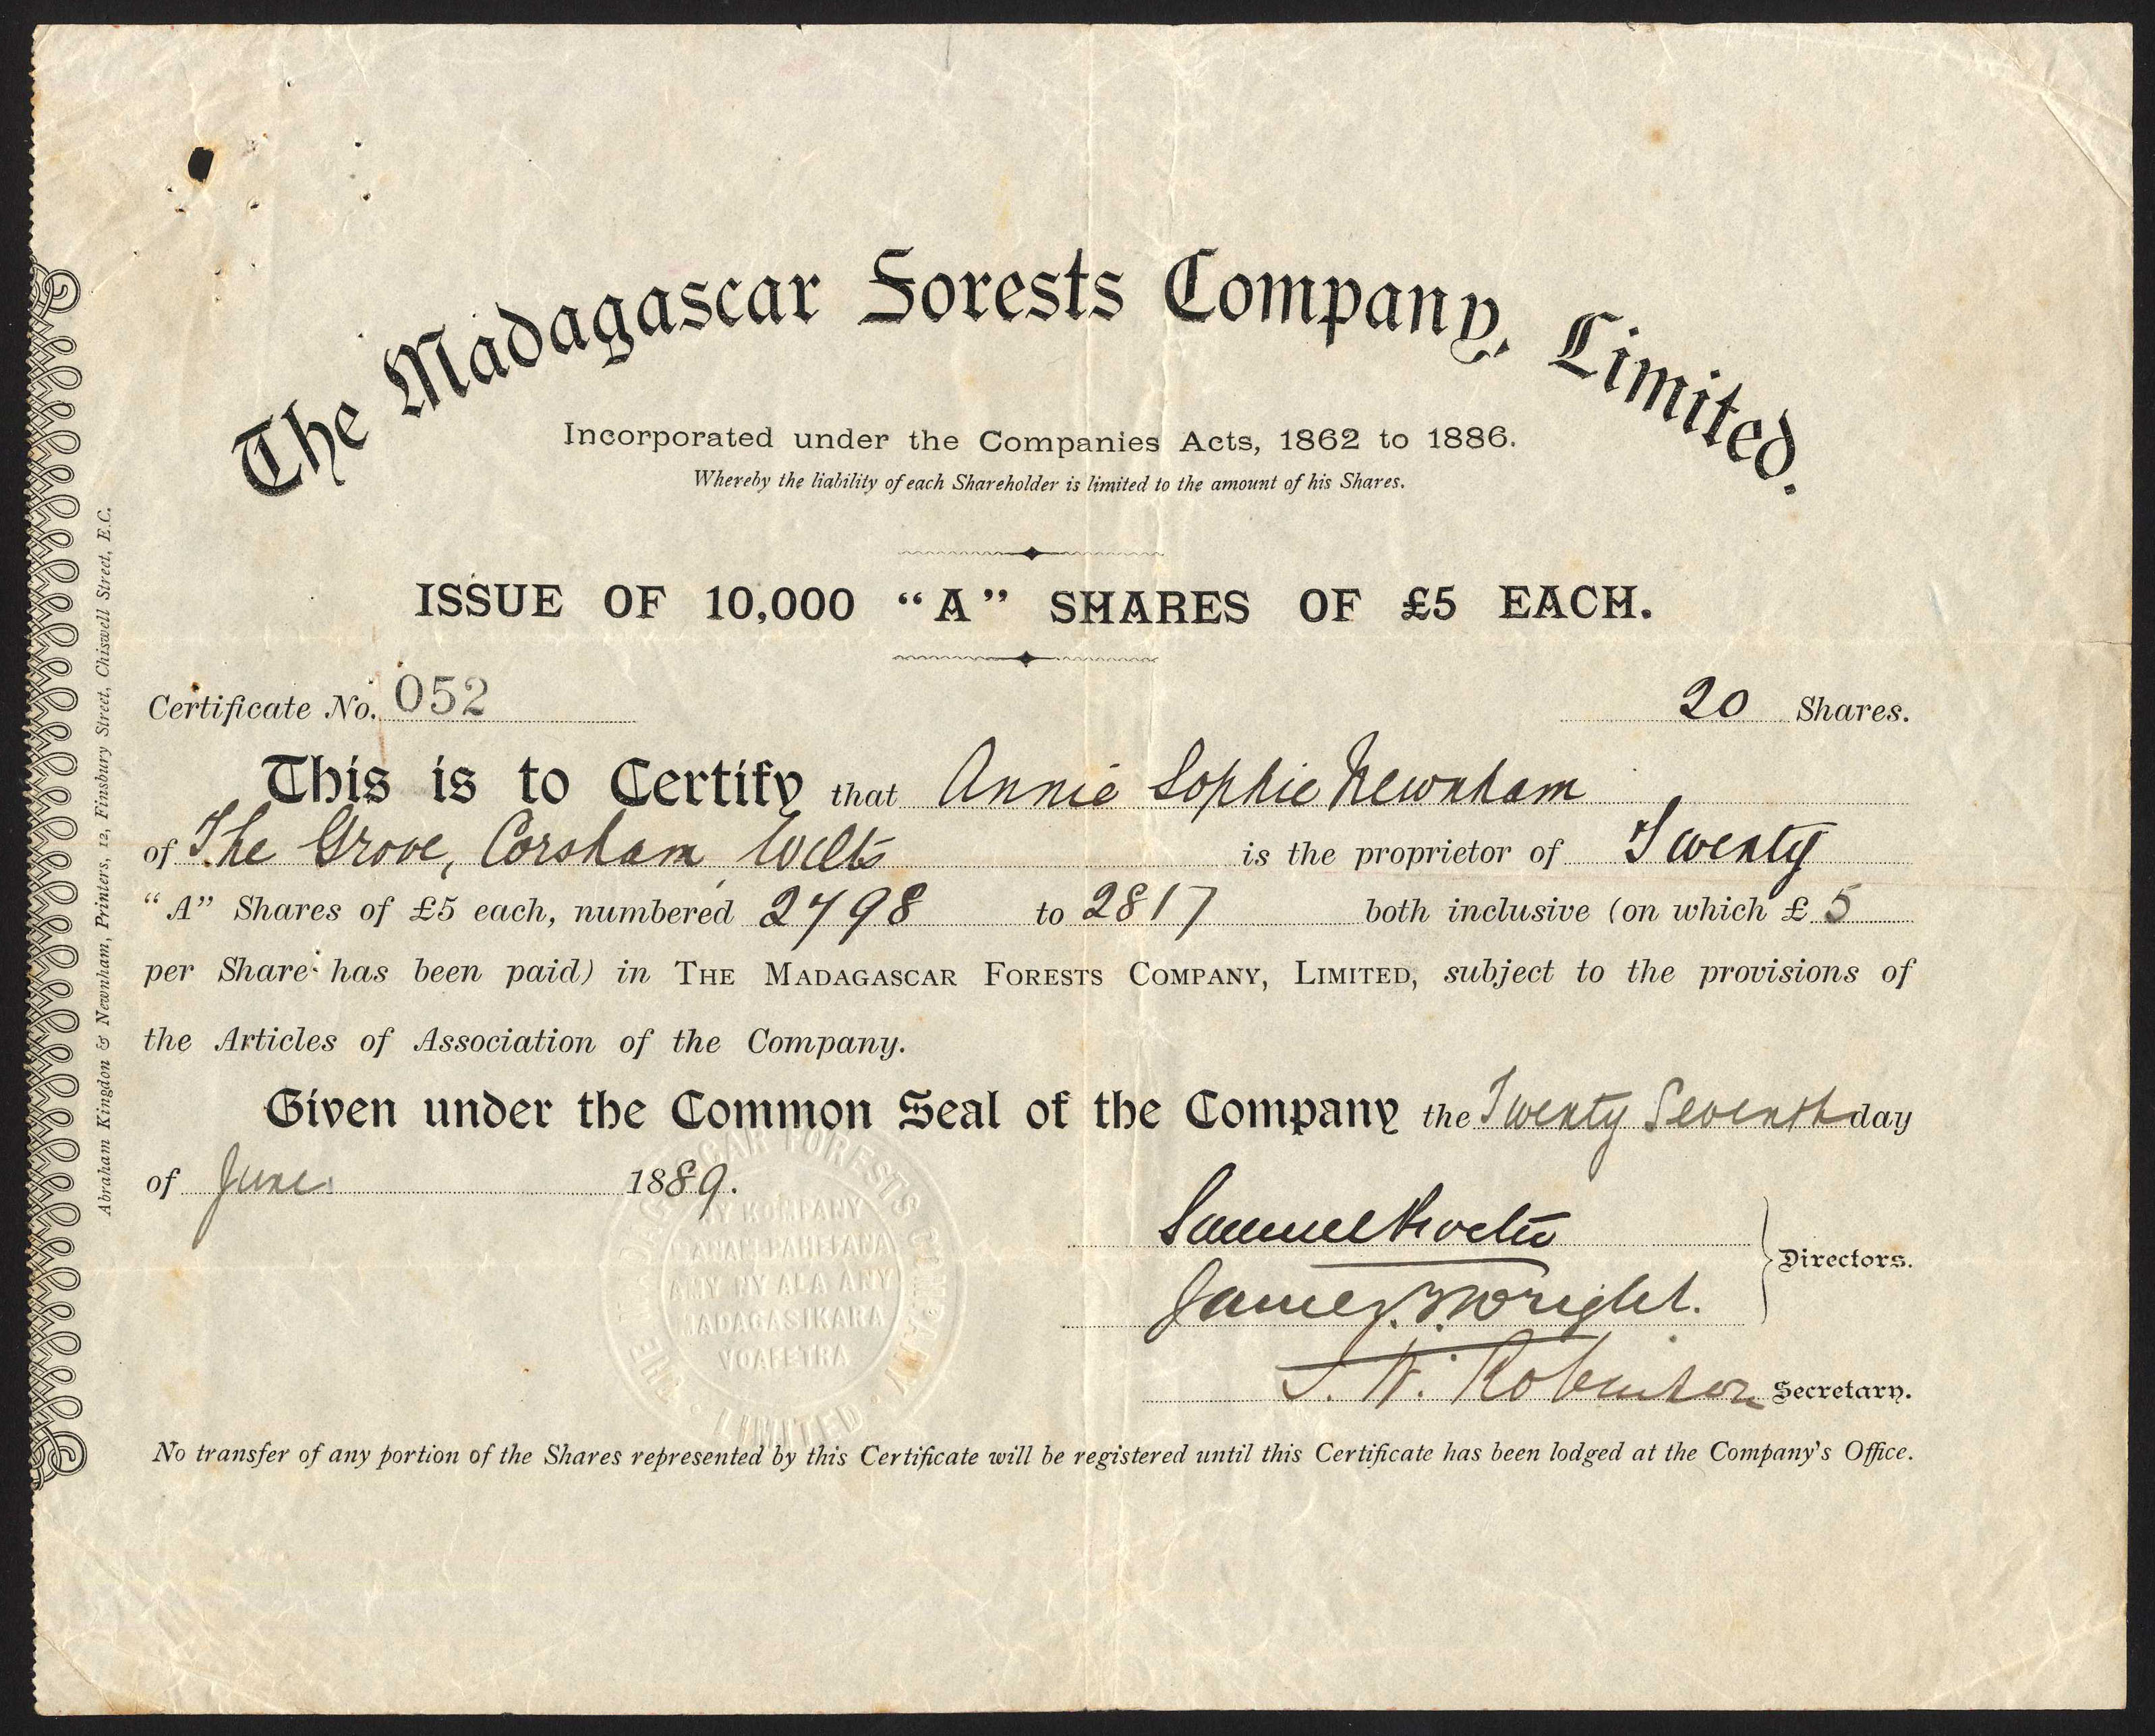 The Madagascar Forests Company, Limited.
Incorporated under the Companies Acts, 1862 to 1886.
Whereby the liability of each Shareholder is limited to the amount of his Shares.
ISSUE OF 10,000 “A” SHARES OF £5 EACH.
Certificate No. 052
20 Shares.
This is to Certify that Annie Sophie Newnham
of The Grove, Corsham, Wilts is the proprietor of Twenty
“A” Shares of £5 each, numbered 2798 to 2817 both inclusive (on which £ 5
per Share has been paid) in THE MADAGASCAR FORESTS COMPANY, LIMITED, subject to the provisions of
the Articles of Association of the Company.
Given under the Common Seal of the Company the Twenty Seventh day
of June 1889.
Samuel
James Wright.
Directors.
Robinson Secretary.
THE MADAGASCAR FORESTS COMPANY LIMITED
NY KOMPANY
AMY NY ALA ANY
MADAGASIKARA
VOAFETRA
No transfer of any portion of the Shares represented by this Certificate will be registered until this Certificate has been lodged at the Company's Office.
Abraham Kingdon & Newnham, Printers, 12, Finsbury Street, Chiswell Street, E.C.